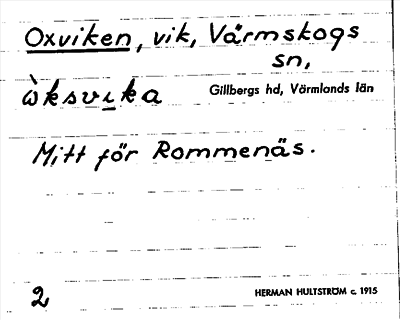 Oxviken, vik, Värmskogs
sn,
ẁksvika Gillbergs hd, Värmlands län
Mitt för Rommenäs.
2 HERMAN HULTSTRÖM c. 1915